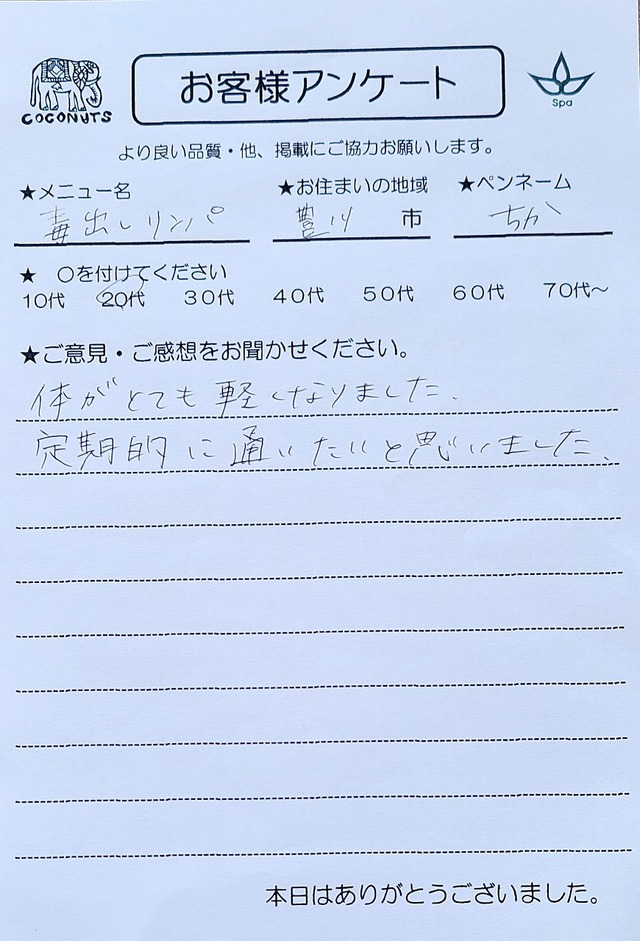 COCONUTS
お客様アンケート
Spa
より良い品質・他、掲載にご協力お願いします。
★メニュー名 ★お住まいの地域 ★ペンネーム
毒出しリンパ 豊川 市 ちか
★ ○を付けてください
10代 20代 30代 40代 50代 60代 70代～
★ご意見・ご感想をお聞かせください。
体がとても軽くなりました.
定期的に通いたいと思いました.
本日はありがとうございました。